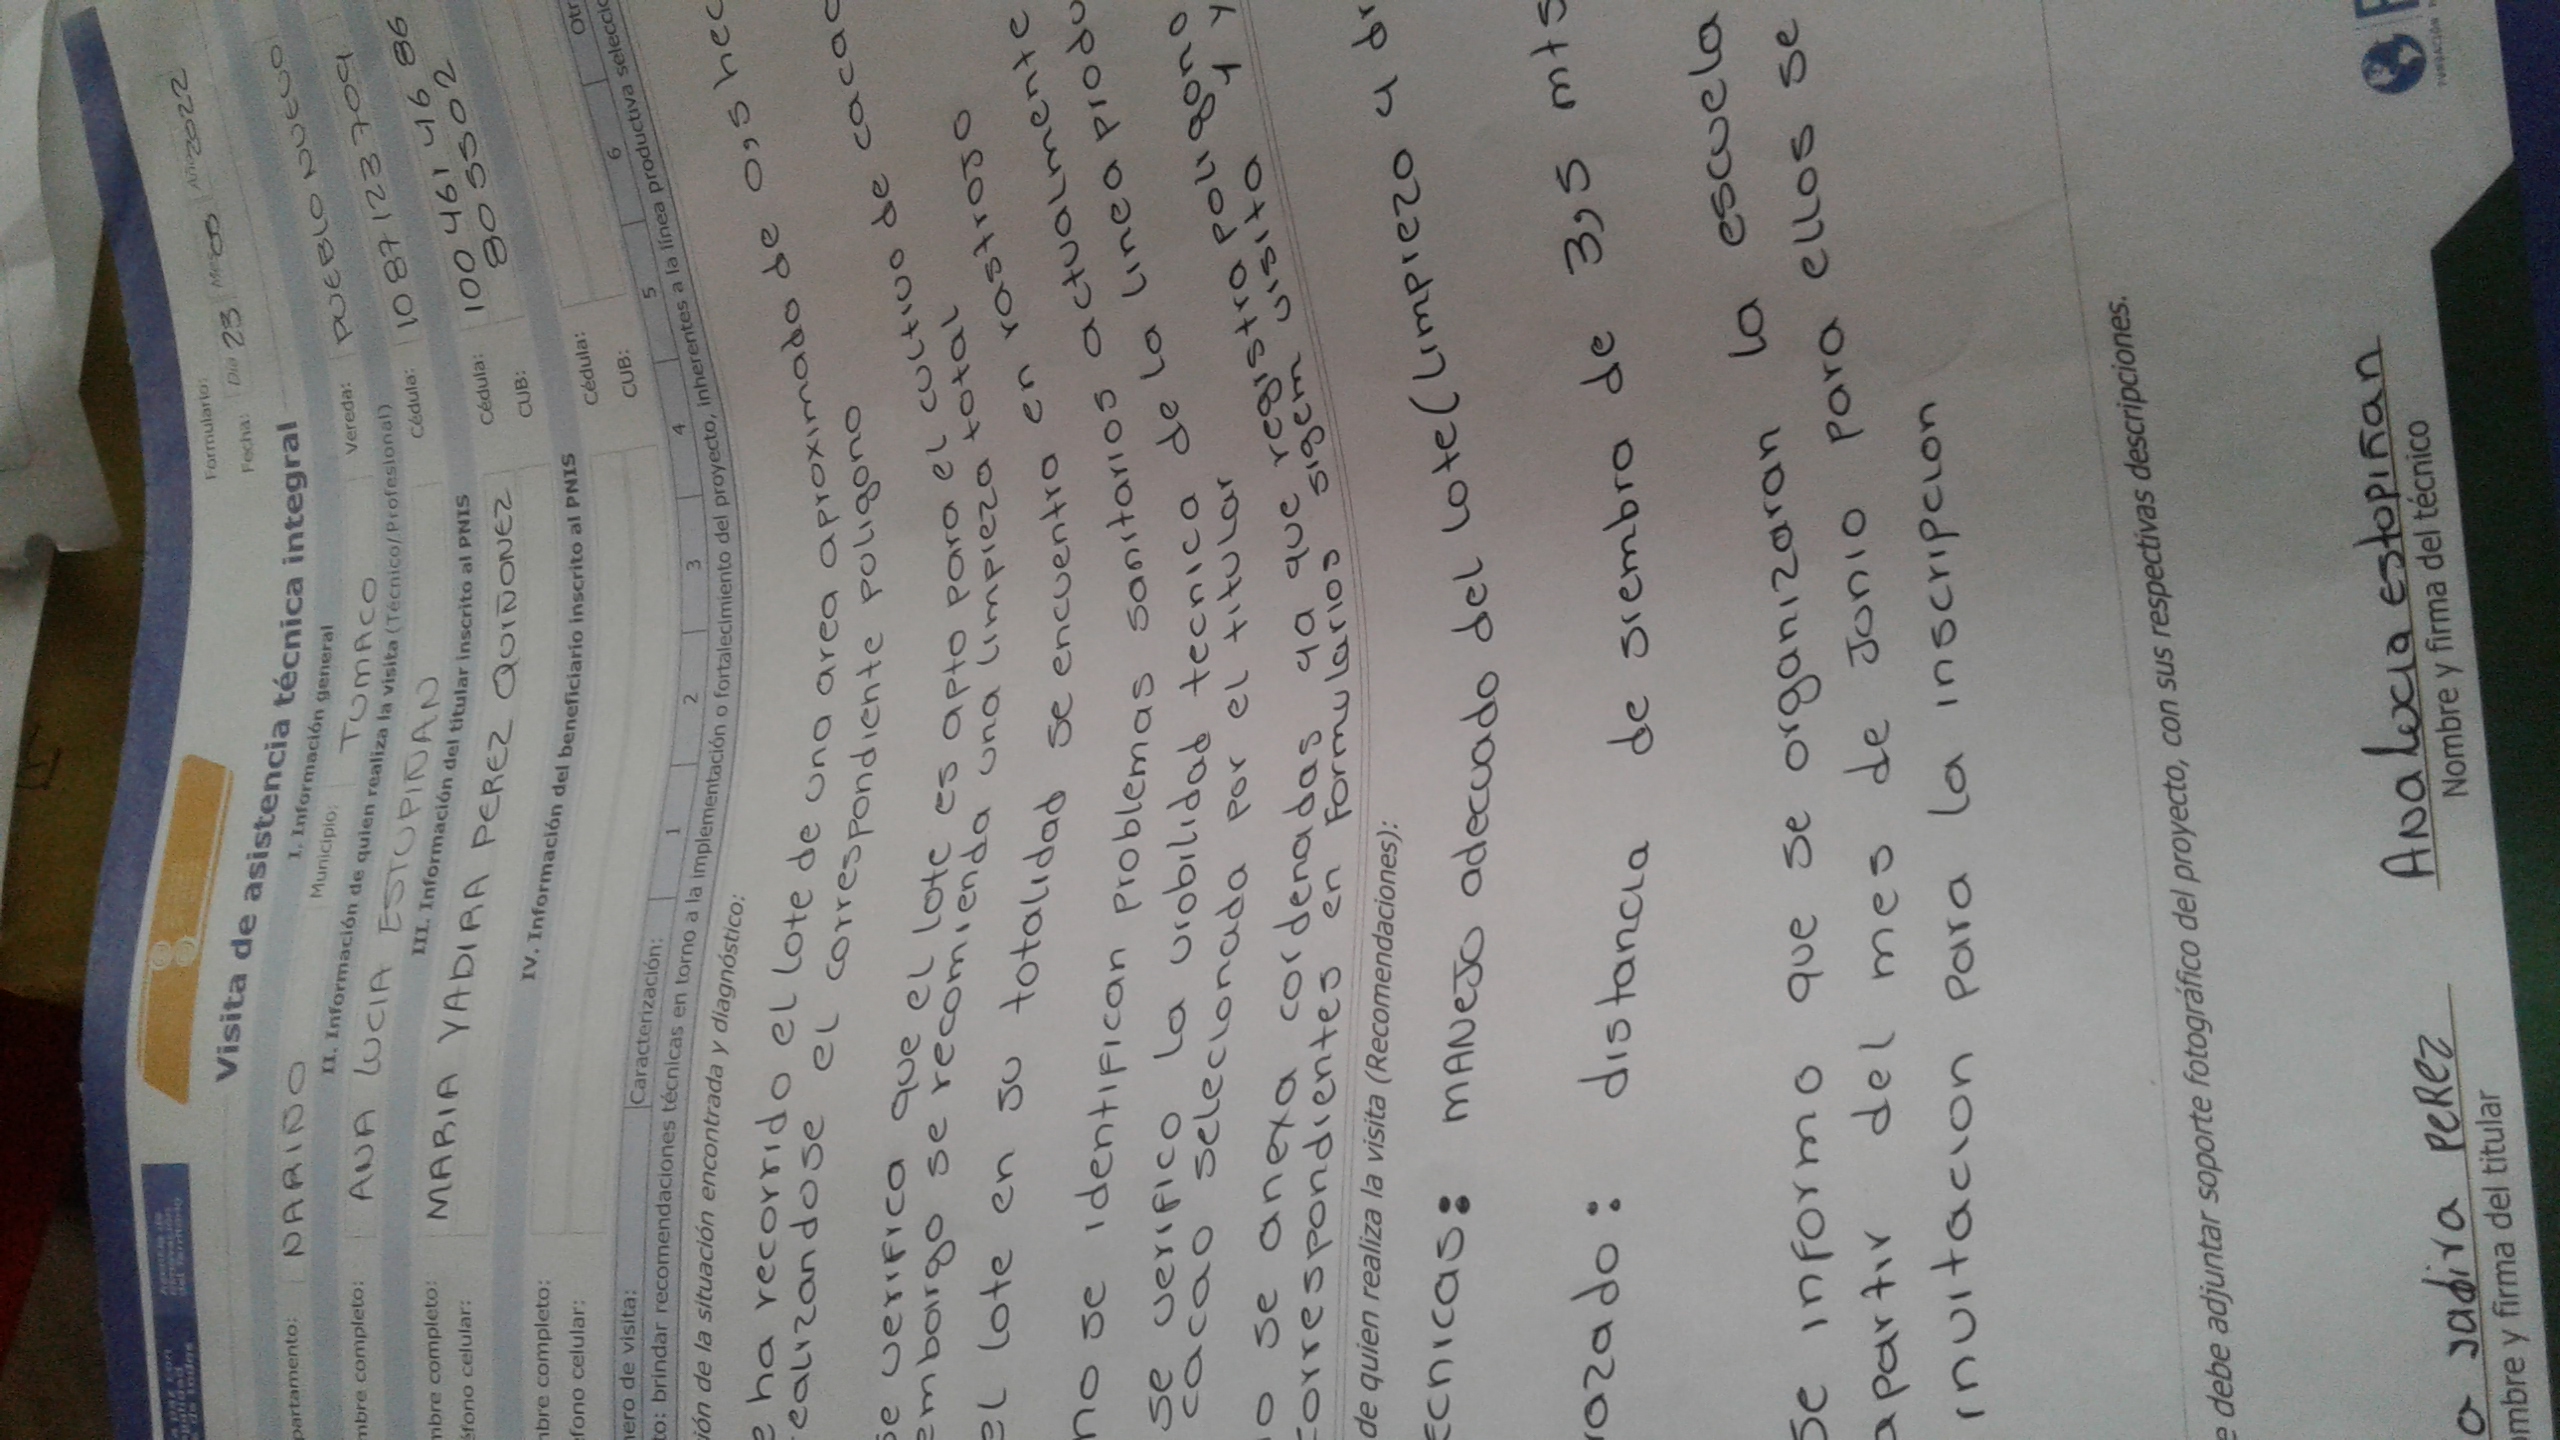 Formulario:
Fecha: Día 23 Mes 03 Año 2022
Visita de asistencia técnica integral
I. Información general
partamento: NARIÑO Municipio: TUMACO Vereda: PUEBLO NUEVO
II. Información de quien realiza la visita (Técnico/Profesional)
mbre completo: ANA LUCIA ESTUPIÑAN Cédula: 1087123709
III. Información del titular inscrito al PNIS
mbre completo: MARIA YADIRA PEREZ QUIÑONEZ Cédula: 1004614686
éfono celular: CUB: 8055502
IV. Información del beneficiario inscrito al PNIS
mbre completo: Cédula:
éfono celular: CUB:
mero de visita: Caracterización: 1 2 3 4 5 6 Otr
to: brindar recomendaciones técnicas en torno a la implementación o fortalecimiento del proyecto, inherentes a la línea productiva selecci
ión de la situación encontrada y diagnóstico:
e ha recorrido el lote de una area aproximado de 0,5 hec
realizandose el correspondiente poligono
se verifica que el lote es apto para el cultivo de cacao
embargo se recomienda una limpieza total
el lote en su totalidad se encuentra en rastrojo
no se identifican problemas sanitarios actualmente
se verifico la viobilidad tecnica de la linea produ
cacao seleclonada por el titular
o se anexa cordenadas ya que registra poligono
correspondientes en formularios sigem visita 4 y
de quien realiza la visita (Recomendaciones):
ecnicas: MANEJO adecuado del lote (limpiezo y dr
razado: distancia de siembra de 3,5 mts
se informo que se organizaran la escuela
apartir del mes de Junio para ellos se
invitacion para la inscripcion
e debe adjuntar soporte fotográfico del proyecto, con sus respectivas descripciones.
a yadira Perez Ana lucia estopiñan
ombre y firma del titular Nombre y firma del técnico